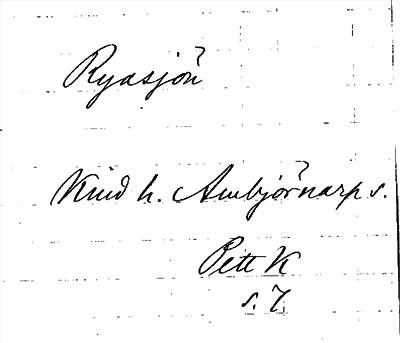 Ryasjön
Kind h. Ambjörnarp s.
Pett K
s. 7.